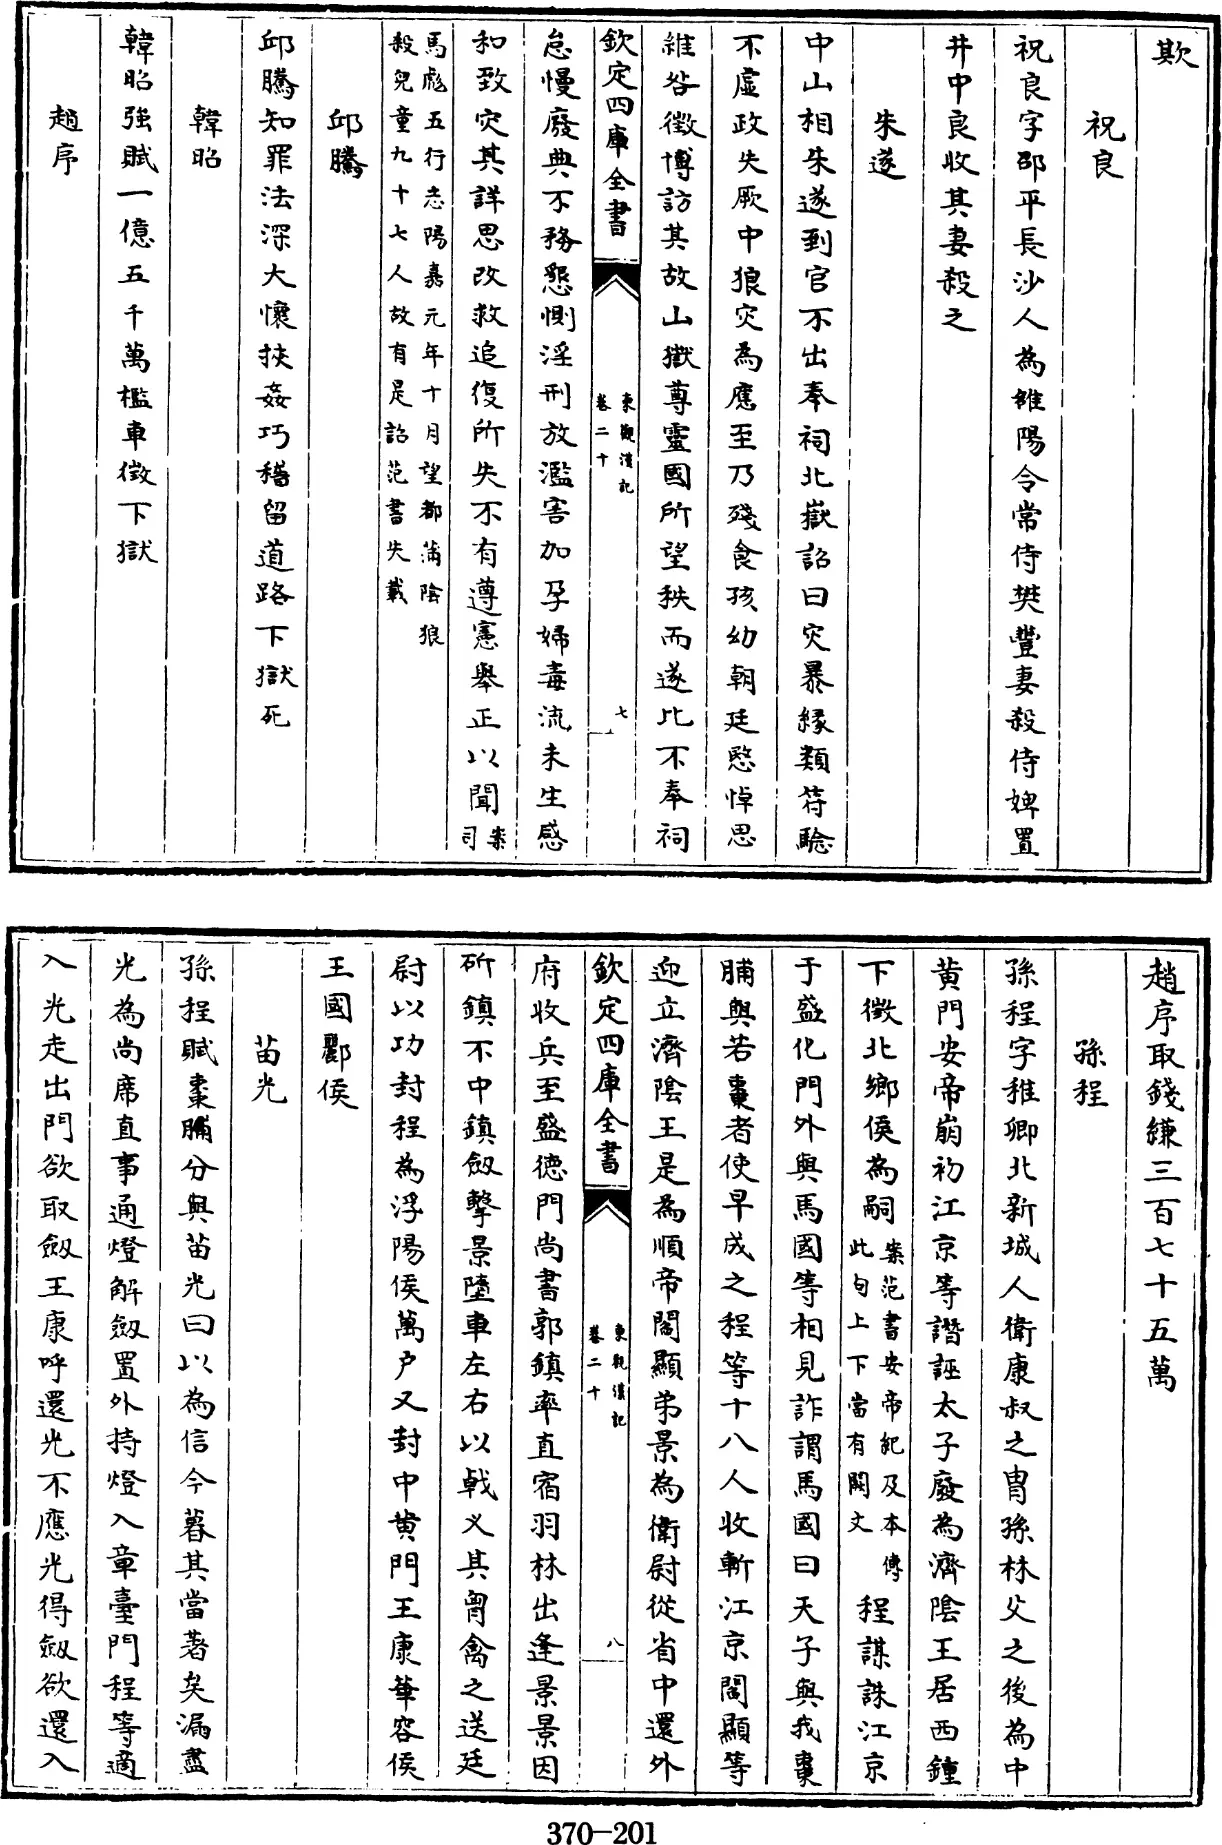 欺
祝良
祝良字邵平長沙人為雒陽令常侍樊豐妻殺侍婢置
井中良收其妻殺之
朱遂
中山相朱遂到官不出奉祠北嶽詔曰灾暴緣類符驗
不虛政失厥中狼灾為應至乃殘食孩幼朝廷愍悼思
維咎徵博訪其故山嶽尊靈國所望秩而遂比不奉祠
欽定四庫全書
東觀漢記
卷二十
七
怠慢廢典不務懇惻淫刑放濫害加孕婦毒流未生感
和致灾其詳思改救追復所失不有遵憲舉正以聞案
司
馬彪五行志陽嘉元年十月望都蒲陰狼
殺兒童九十七人故有是詔范書失載
邱騰
邱騰知罪法深大懷挾姦巧稽留道路下獄死
韓昭
韓昭強賦一億五千萬檻車徵下獄
趙序
趙序取錢縑三百七十五萬
孫程
孫程字稚卿北新城人衛康叔之胄孫林父之後為中
黃門安帝崩初江京等譖誣太子廢為濟陰王居西鐘
下徵北鄉侯為嗣案范書安帝紀及本傳
此句上下當有闕文程謀誅江京
于盛化門外與馬國等相見詐謂馬國曰天子與我棗
脯與若棗者使早成之程等十八人收斬江京閻顯等
迎立濟陰王是為順帝閻顯弟景為衛尉從省中還外
欽定四庫全書
東觀漢記
卷二十
八
府收兵至盛德門尚書郭鎮率直宿羽林出逢景景因
斫鎮不中鎮劔擊景墮車左右以戟义其胷禽之送廷
尉以功封程為浮陽侯萬户又封中黄門王康華容侯
王國酈侯
苗光
孫程賦棗脯分與苗光曰以為信今暮其當著矣漏盡
光為尚席直事通燈解劔置外持燈入章臺門程等適
入光走出門欲取劔王康呼還光不應光得劔欲還入
370-201